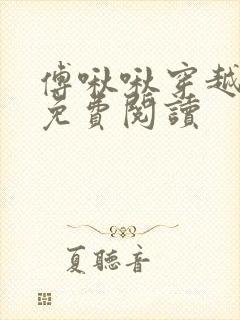 傅啾啾穿越
免費閱讀
夏聽音